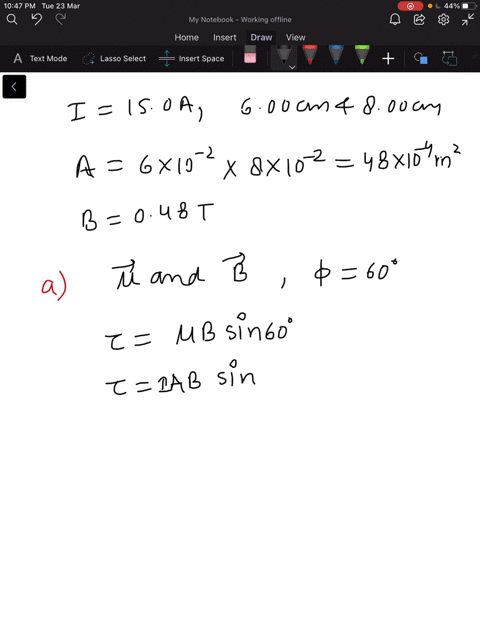 10:47 PM Tue 23 Mar
44%
My Notebook - Working offline
Home Insert Draw View
Text Mode Lasso Select Insert Space
I = 15.0A, 6.00cm & 8.00cm
A = 6×10⁻² × 8×10⁻² = 48×10⁻⁴m²
B = 0.48T
a) μ⃗ and B⃗, ϕ = 60°
τ = μB sin60°
τ = IAB sin